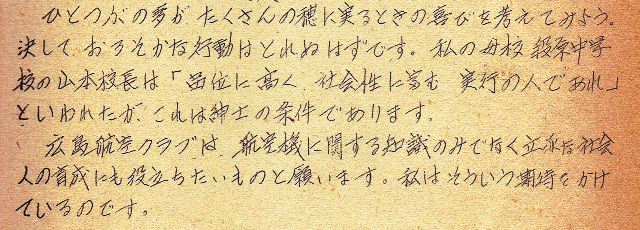 ひとつぶの麦が、たくさんの穂に実るときの喜びを考えてみよう。
決して、おろそかな行動はとれぬはずです。私の母校 段原中学
校の山本校長は「品位に高く、社会性に富む 実行の人であれ」
といわれたが、これは紳士の条件であります。
広島航空クラブは、航空機に関する知識のみでなく立派な社会
人の育成にも役立ちたいものと願います。私はそういう期待をかけ
ているのです。